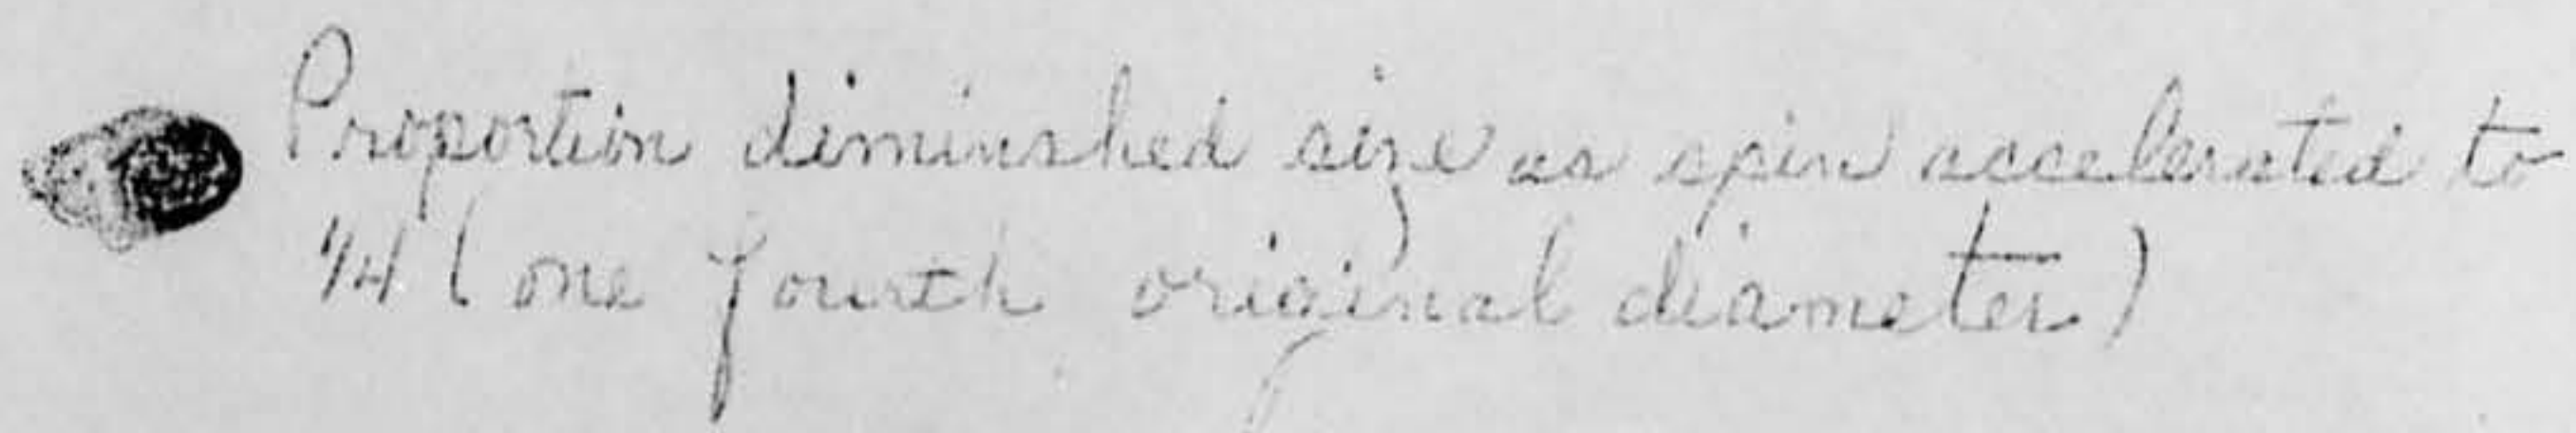 Proportion diminished size as spin accelerated to
1/4 (one fourth original diameter)